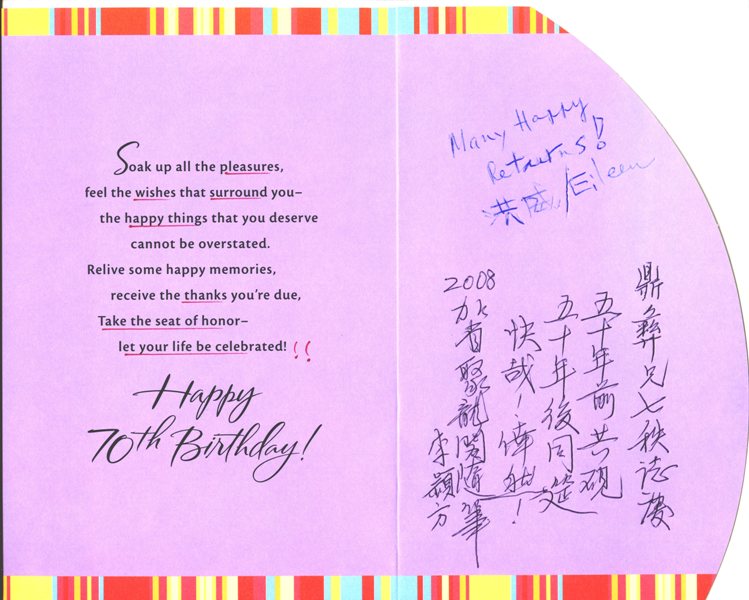 Soak up all the pleasures,
feel the wishes that surround you–
the happy things that you deserve
cannot be overstated.
Relive some happy memories,
receive the thanks you're due,
Take the seat of honor–
let your life be celebrated! !!
Happy
70th Birthday!
Many Happy
Returns!
洪威/Eileen
鼎彝兄七秩誌慶
五十年前共硯
五十年後同筵
快哉！偉！
2008
加省聚龍閣隨筆
李穎方